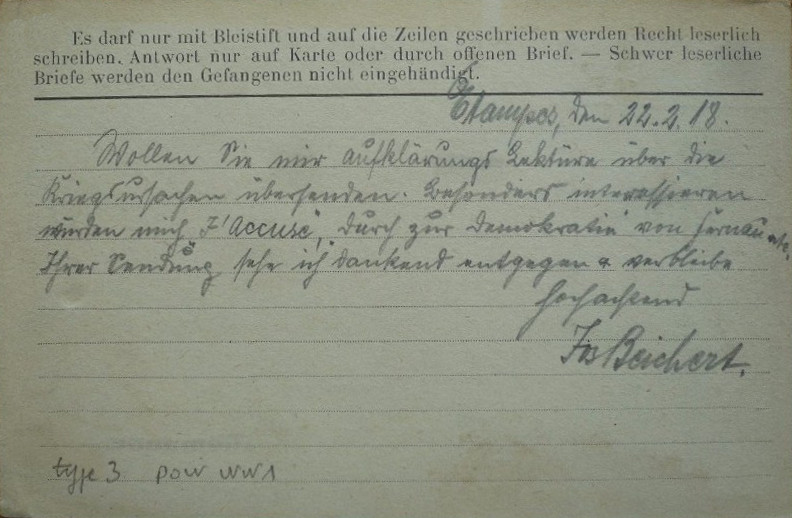 Es darf nur mit Bleistift und auf die Zeilen geschrieben werden Recht leserlich
schreiben. Antwort nur auf Karte oder durch offenen Brief. — Schwer leserliche
Briefe werden den Gefangenen nicht eingehändigt.
Etampes, den 22.2.18.
Wollen Sie mir Aufklärungs Lektüre über die
Kriegsursachen übersenden. Besonders interessieren
würden mich J'accuse, durch zur Demokratie von Fernau etc.
Ihrer Sendung sehe ich dankend entgegen & verbleibe
hochachtend
Jos Beichert.
type 3 pow ww1